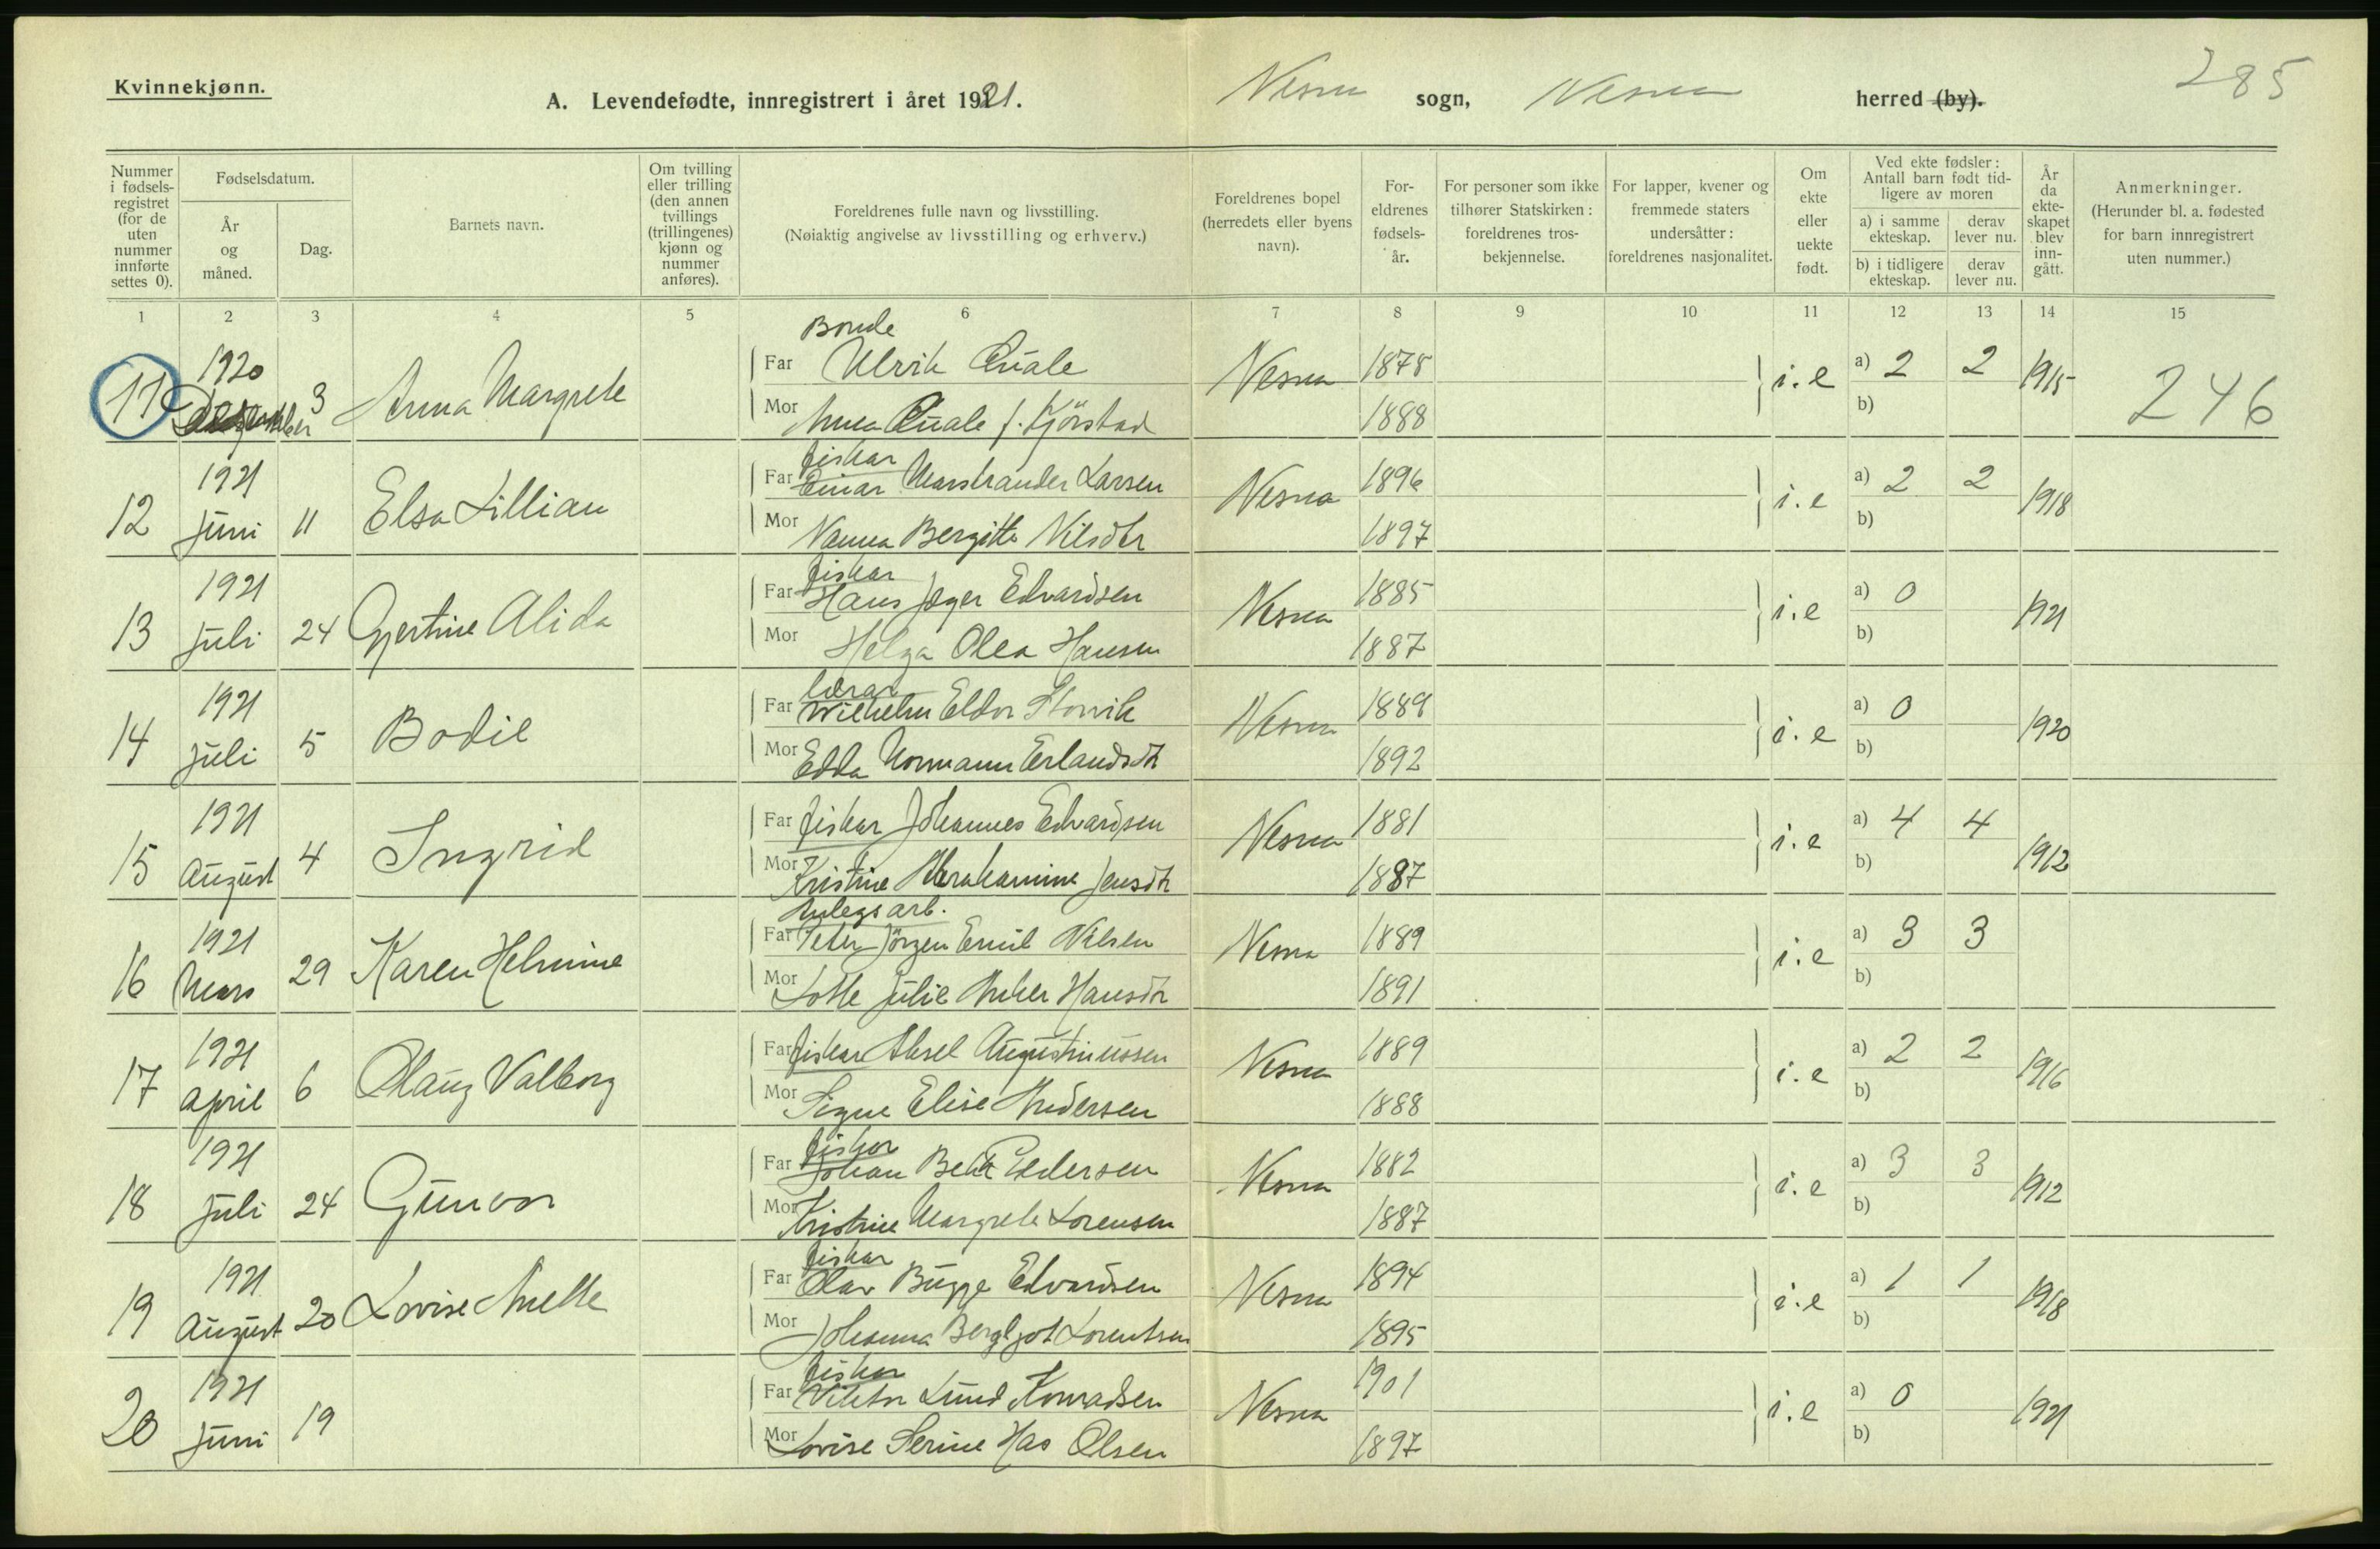 Kvinnekjønn.
A. Levendefødte, innregistrert i året 1921.
Nesna sogn, Nesna herred (by).
285
Nummer i fødsels-registret (for de uten nummer innførte settes 0).
Fødselsdatum.
År og måned.
Dag.
Barnets navn.
Om tvilling eller trilling (den annen tvillings (trillingenes) kjønn og nummer anføres).
Foreldrenes fulle navn og livsstilling.
(Nøiaktig angivelse av livsstilling og erhverv.)
Foreldrenes bopel (herredets eller byens navn).
For-eldrenes fødsels-år.
For personer som ikke tilhører Statskirken: foreldrenes tros-bekjennelse.
For lapper, kvener og fremmede staters undersåtter: foreldrenes nasjonalitet.
Om ekte eller uekte født.
Ved ekte fødsler: Antall barn født tid-ligere av moren
a) i samme ekteskap.
derav lever nu.
b) i tidligere ekteskap.
derav lever nu.
År da ekte-skapet blev inn-gått.
Anmerkninger.
(Herunder bl. a. fødested for barn innregistrert uten nummer.)
1 2 3 4 5 6 7 8 9 10 11 12 13 14 15
Bonde
11 1920 Desember 3 Anna Margrete Far Ulrik Quale Nesna 1878 i.e a) 2 2 1915 246
Mor Anna Quale f. Kjörstad 1888 b)
fiskar
12 1921 juni 11 Elsa Lillian Far Einar Marstrander Larsen Nesna 1896 i.e a) 2 2 1918
Mor Nanna Bergitte Nilsdtr 1897 b)
fiskar
13 1921 juli 24 Gjertine Alida Far Hans Jæger Edvardsen Nesna 1885 i.e a) 0 1921
Mor Helga Olea Hansen 1887 b)
lærar
14 1921 juli 5 Bodil Far Wilhelm Eldor Storvik Nesna 1889 i.e a) 0 1920
Mor Edda Normann Erlandsdtr 1892 b)
15 1921 August 4 Ingrid Far fiskar Johannes Edvardsen Nesna 1881 i.e a) 4 4 1912
Mor Kristine Abrahamine Jensdtr 1887 b)
Anlegsarb.
16 1921 Mars 29 Karen Helmine Far Peter Jörgen Emil Nilsen Nesna 1889 i.e a) 3 3
Mor Lotte Julie Anker Hansdtr 1891 b)
17 1921 April 6 Olaug Valborg Far fiskar Aksel Augustinussen Nesna 1889 i.e a) 2 2 1916
Mor Signe Elise Andersen 1888 b)
fiskar
18 1921 juli 24 Gunvor Far Johan Pedersen Nesna 1882 i.e a) 3 3 1912
Mor Kristine Margrete Lorensen 1887 b)
fiskar
19 1921 August 20 Lovise Anette Far Olav Bugge Edvardsen Nesna 1894 i.e a) 1 1 1918
Mor Johanna Bergljot Lorentsen 1895 b)
fiskar
20 1921 juni 19 Far Viktor Lund Konradsen Nesna 1901 i.e a) 0 1921
Mor Lovise Serine Has Olsen 1897 b)